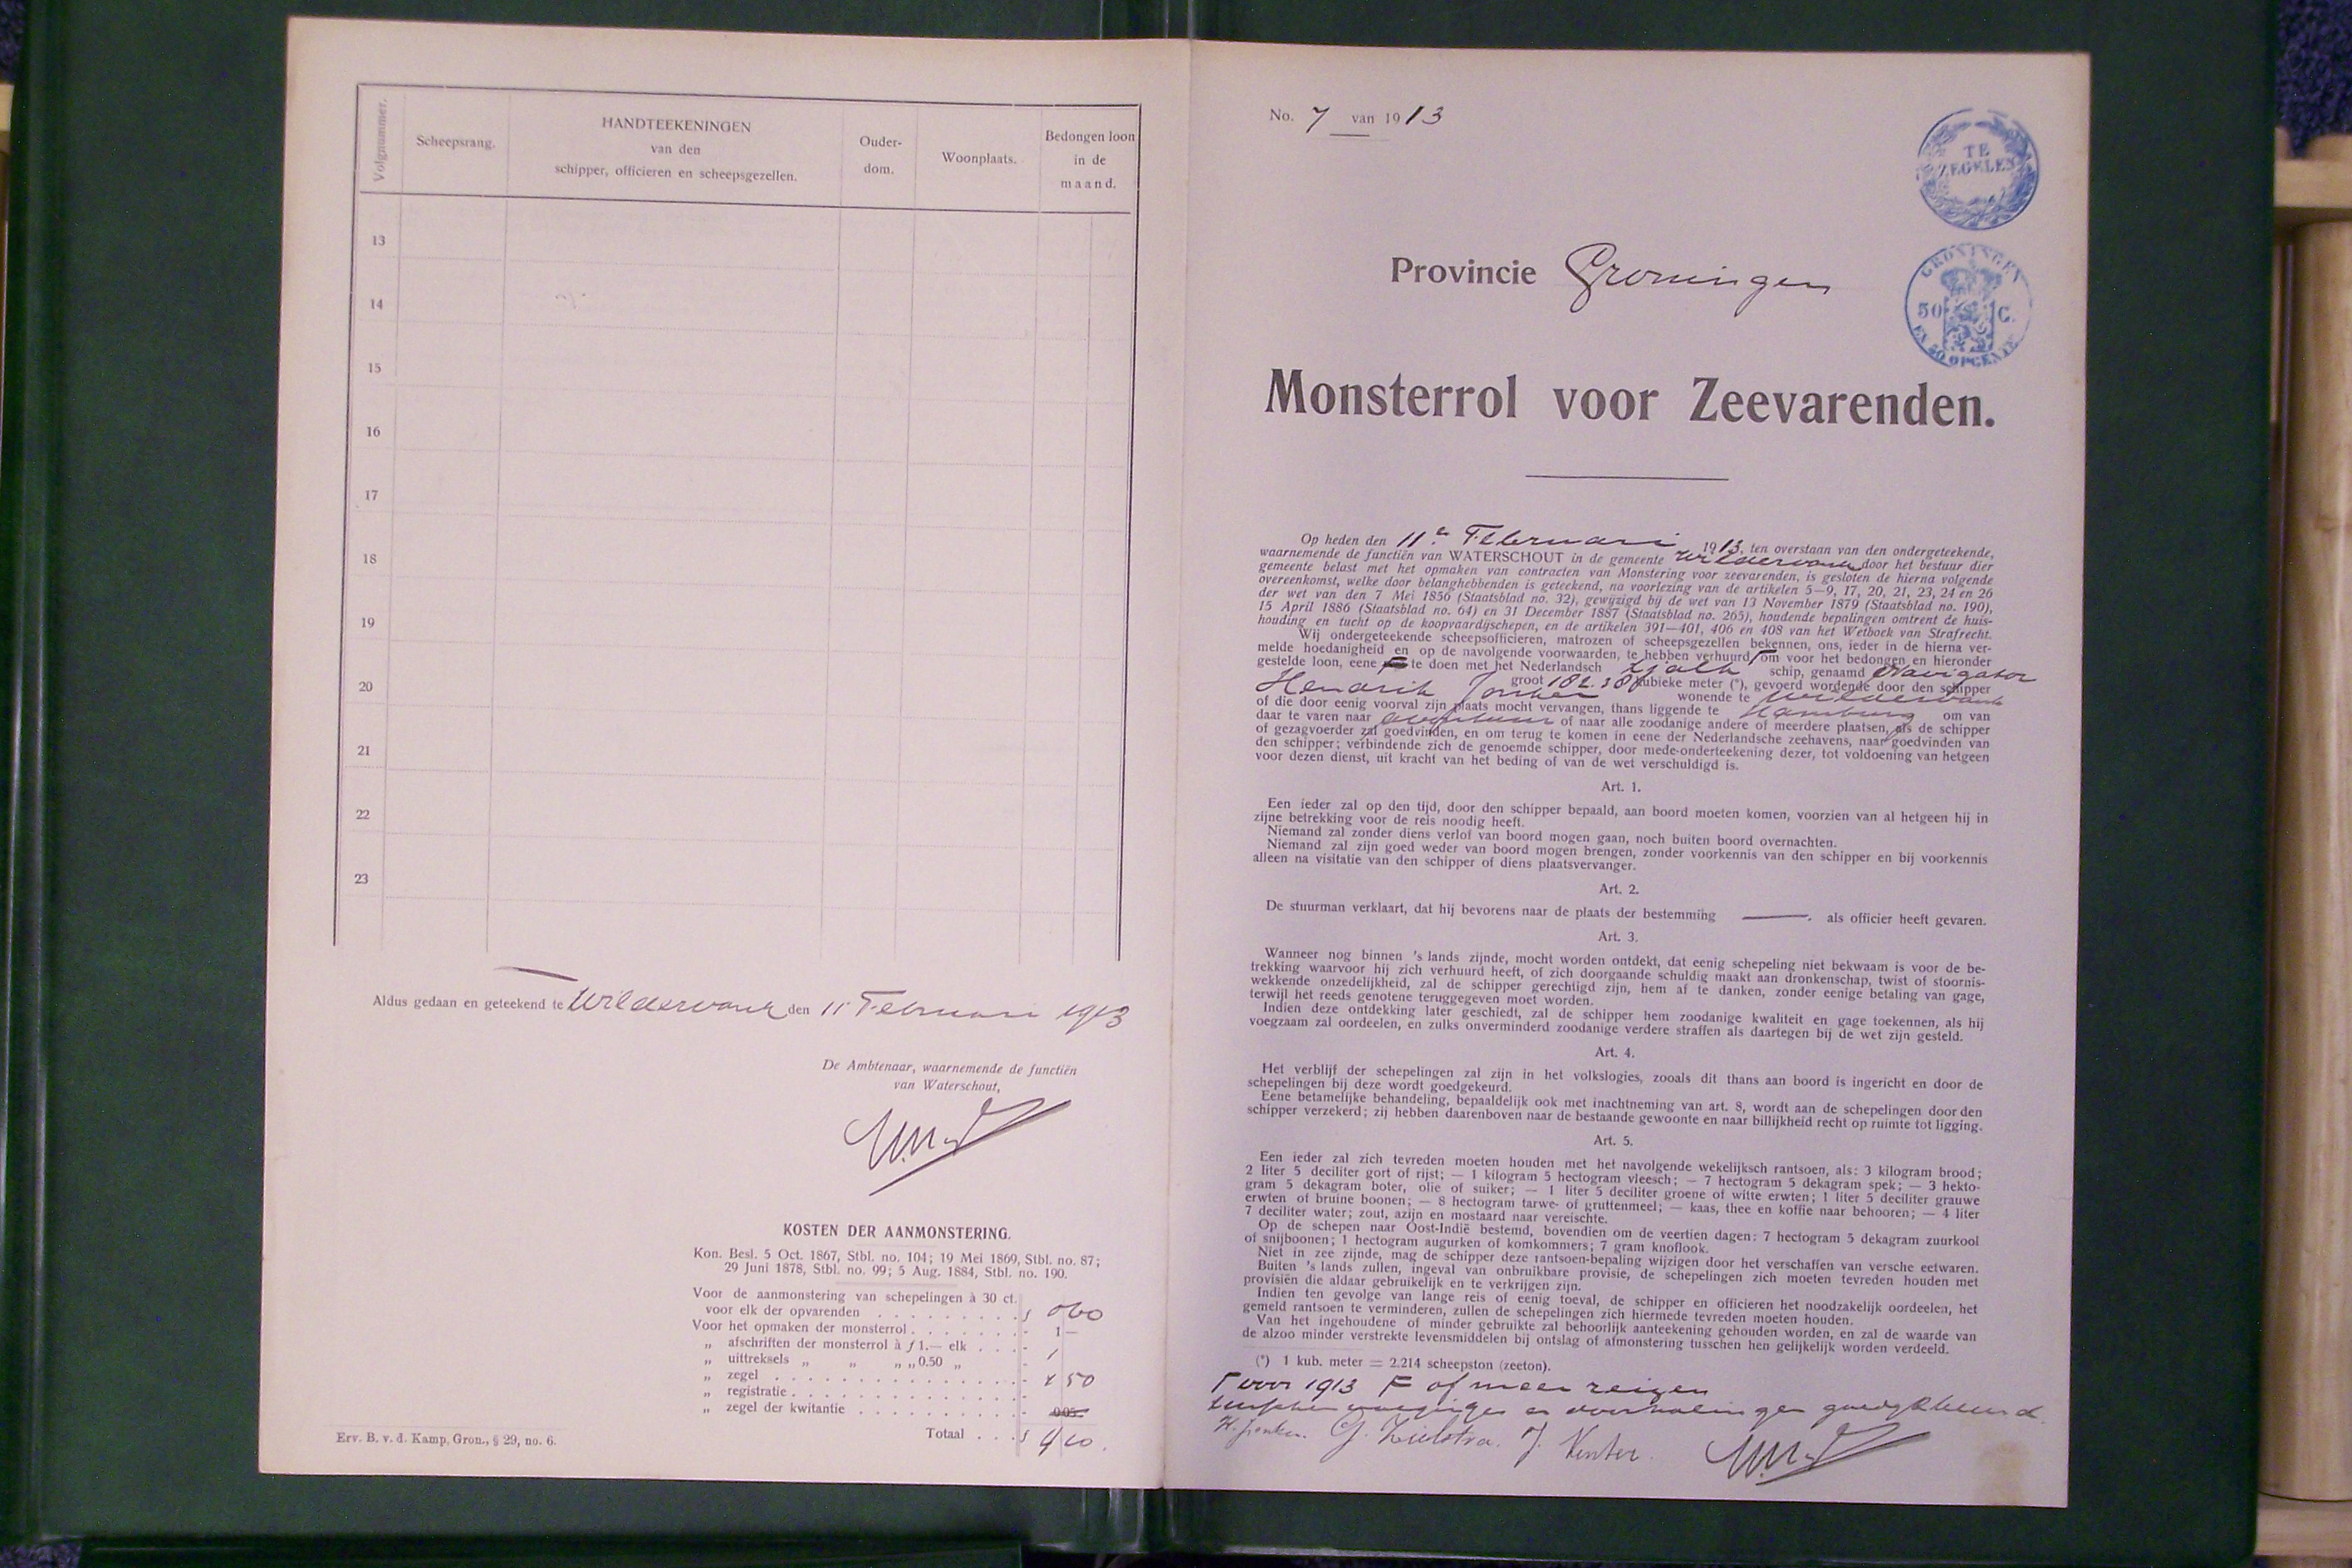 Volgnummer.
Scheepsrang.
HANDTEEKENINGEN
van den
schipper, officieren en scheepsgezellen.
Ouder-
dom.
Woonplaats.
Bedongen loon
in de
maand.
13
14
15
16
17
18
19
20
21
22
23
Aldus gedaan en geteekend te Wildervank den 11 Februari 1913
De Ambtenaar, waarnemende de functiën
van Waterschout,
KOSTEN DER AANMONSTERING.
Kon. Besl. 5 Oct. 1867, Stbl. no. 104; 19 Mei 1869, Stbl. no. 87;
29 Juni 1878, Stbl. no. 99; 5 Aug. 1884, Stbl. no. 190.
Voor de aanmonstering van schepelingen à 30 ct.
voor elk der opvarenden . . . . . . . . . f 0 60
Voor het opmaken der monsterrol . . . . . . . - 1 —
„ afschriften der monsterrol à f 1.— elk . . . - 1
„ uittreksels „ „ „ „ 0.50 „ -
„ zegel . . . . . . . . . . . . . . . - 50
„ registratie . . . . . . . . . . . . . . -
„ zegel der kwitantie . . . . . . . . . . - 0.05
Totaal . . . f
Erv. B. v. d. Kamp, Gron., § 29, no. 6.
No. 7 van 1913
TE
ZEGELEN
GRONINGEN
50 C.
EN 50 OPCENTEN
Provincie Groningen
Monsterrol voor Zeevarenden.
Op heden den 11e Februari 1913, ten overstaan van den ondergeteekende,
waarnemende de functiën van WATERSCHOUT in de gemeente Wildervank door het bestuur dier
gemeente belast met het opmaken van contracten van Monstering voor zeevarenden, is gesloten de hierna volgende
overeenkomst, welke door belanghebbenden is geteekend, na voorlezing van de artikelen 5—9, 17, 20, 21, 23, 24 en 26
der wet van den 7 Mei 1856 (Staatsblad no. 32), gewijzigd bij de wet van 13 November 1879 (Staatsblad no. 190),
15 April 1886 (Staatsblad no. 64) en 31 December 1887 (Staatsblad no. 265), houdende bepalingen omtrent de huis-
houding en tucht op de koopvaardijschepen, en de artikelen 391—401, 406 en 408 van het Wetboek van Strafrecht.
Wij ondergeteekende scheepsofficieren, matrozen of scheepsgezellen bekennen, ons, ieder in de hierna ver-
melde hoedanigheid en op de navolgende voorwaarden, te hebben verhuurd om voor het bedongen en hieronder
gestelde loon, eene te doen met het Nederlandsch tjalk schip, genaamd Navigator
groot 182.38 kubieke meter (*), gevoerd wordende door den schipper
Hendrik Jonker wonende te Wildervank
of die door eenig voorval zijn plaats mocht vervangen, thans liggende te Hamburg om van
daar te varen naar avontuur of naar alle zoodanige andere of meerdere plaatsen, als de schipper
of gezagvoerder zal goedvinden, en om terug te komen in eene der Nederlandsche zeehavens, naar goedvinden van
den schipper; verbindende zich de genoemde schipper, door mede-onderteekening dezer, tot voldoening van hetgeen
voor dezen dienst, uit kracht van het beding of van de wet verschuldigd is.
Art. 1.
Een ieder zal op den tijd, door den schipper bepaald, aan boord moeten komen, voorzien van al hetgeen hij in
zijne betrekking voor de reis noodig heeft.
Niemand zal zonder diens verlof van boord mogen gaan, noch buiten boord overnachten.
Niemand zal zijn goed weder van boord mogen brengen, zonder voorkennis van den schipper en bij voorkennis
alleen na visitatie van den schipper of diens plaatsvervanger.
Art. 2.
De stuurman verklaart, dat hij bevorens naar de plaats der bestemming ——. als officier heeft gevaren.
Art. 3.
Wanneer nog binnen 's lands zijnde, mocht worden ontdekt, dat eenig schepeling niet bekwaam is voor de be-
trekking waarvoor hij zich verhuurd heeft, of zich doorgaande schuldig maakt aan dronkenschap, twist of stoornis-
wekkende onzedelijkheid, zal de schipper gerechtigd zijn, hem af te danken, zonder eenige betaling van gage,
terwijl het reeds genotene teruggegeven moet worden.
Indien deze ontdekking later geschiedt, zal de schipper hem zoodanige kwaliteit en gage toekennen, als hij
voegzaam zal oordeelen, en zulks onverminderd zoodanige verdere straffen als daartegen bij de wet zijn gesteld.
Art. 4.
Het verblijf der schepelingen zal zijn in het volkslogies, zooals dit thans aan boord is ingericht en door de
schepelingen bij deze wordt goedgekeurd.
Eene betamelijke behandeling, bepaaldelijk ook met inachtneming van art. 8, wordt aan de schepelingen door den
schipper verzekerd; zij hebben daarenboven naar de bestaande gewoonte en naar billijkheid recht op ruimte tot ligging.
Art. 5.
Een ieder zal zich tevreden moeten houden met het navolgende wekelijksch rantsoen, als: 3 kilogram brood;
2 liter 5 deciliter gort of rijst; — 1 kilogram 5 hectogram vleesch; — 7 hectogram 5 dekagram spek; — 3 hekto-
gram 5 dekagram boter, olie of suiker; — 1 liter 5 deciliter groene of witte erwten; 1 liter 5 deciliter grauwe
erwten of bruine boonen; — 8 hectogram tarwe- of gruttenmeel; — kaas, thee en koffie naar behooren; — 4 liter
7 deciliter water; zout, azijn en mostaard naar vereischte.
Op de schepen naar Oost-Indië bestemd, bovendien om de veertien dagen: 7 hectogram 5 dekagram zuurkool
of snijboonen; 1 hectogram augurken of komkommers; 7 gram knoflook.
Niet in zee zijnde, mag de schipper deze rantsoen-bepaling wijzigen door het verschaffen van versche eetwaren.
Buiten 's lands zullen, ingeval van onbruikbare provisie, de schepelingen zich moeten tevreden houden met
provisiën die aldaar gebruikelijk en te verkrijgen zijn.
Indien ten gevolge van lange reis of eenig toeval, de schipper en officieren het noodzakelijk oordeelen, het
gemeld rantsoen te verminderen, zullen de schepelingen zich hiermede tevreden moeten houden.
Van het ingehoudene of minder gebruikte zal behoorlijk aanteekening gehouden worden, en zal de waarde van
de alzoo minder verstrekte levensmiddelen bij ontslag of afmonstering tusschen hen gelijkelijk worden verdeeld.
(*) 1 kub. meter = 2.214 scheepston (zeeton).
voor 1913 of meer reizen
tusschen en doorhalingen goedgekeurd
H. Jonker. J. Kenter.